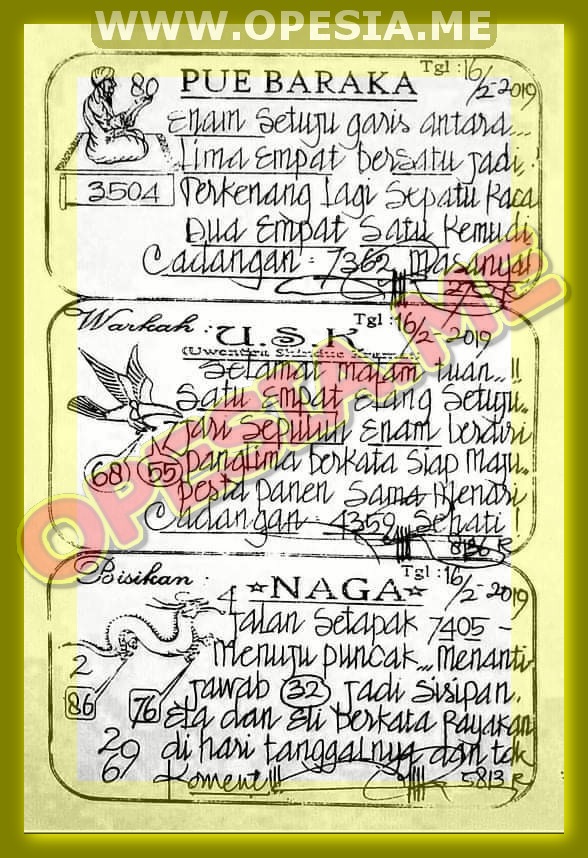 WWW.OPESIA.ME
PUE BARAKA
Tgl : 16/2-2019
80
Enam Setuju garis antara...
Lima Empat bersatu jadi,!
3504
Terkenang Lagi Sepatu Kaca
Dua Empat Satu Kemudi,
Cadangan : 7362 Masanya!
Warkah :
U.S.K
Tgl : 16/2-2019
Selamat malam Tuan..!!
Satu Empat Elang Setuju..
Jari Sepuluh Enam berdiri
68 55
Panglima berkata Siap Maju..
Pesta panen Sama Menari
Cadangan : 4359 Sehati !
OPESIA.ME
Bisikan :
NAGA
Tgl : 16/2-2019
4
Jalan Setapak 7405 -
Menuju puncak... Menanti
2
jawab 32 Jadi Sisipan.
86 76
Eta dan Eli berkata Rayakan
29
di hari tanggalnya dan tak
69
Koment!!!
5813 R